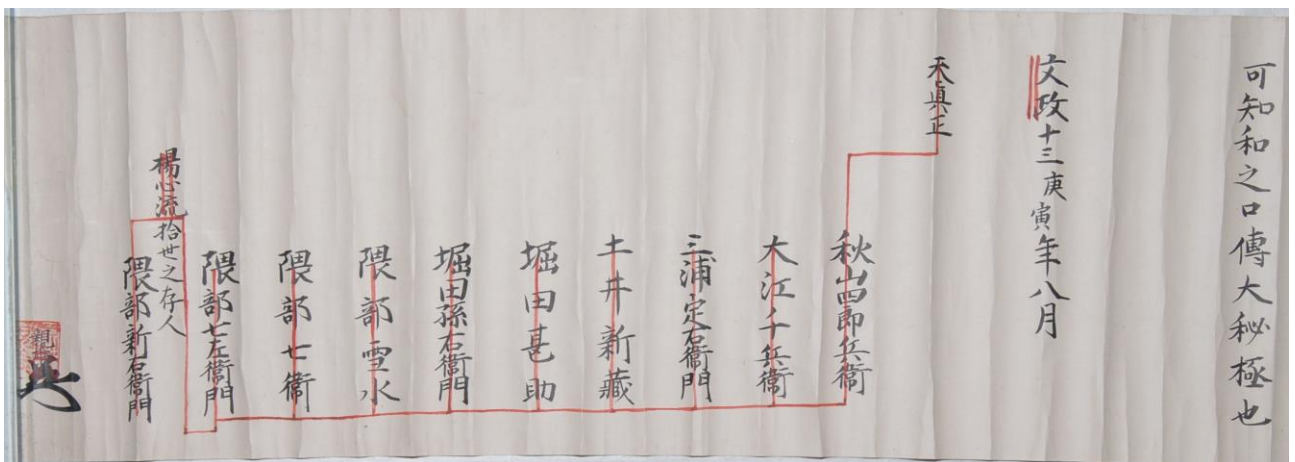 可知和之口傳大秘極也
文政十三庚寅年八月
天真正
秋山四郎兵衛
大江千兵衛
三浦定右衛門
土井新藏
堀田甚助
堀田孫右衛門
隈部雪水
隈部七衛
隈部七左衛門
楊心流拾世之存人
隈部新右衛門